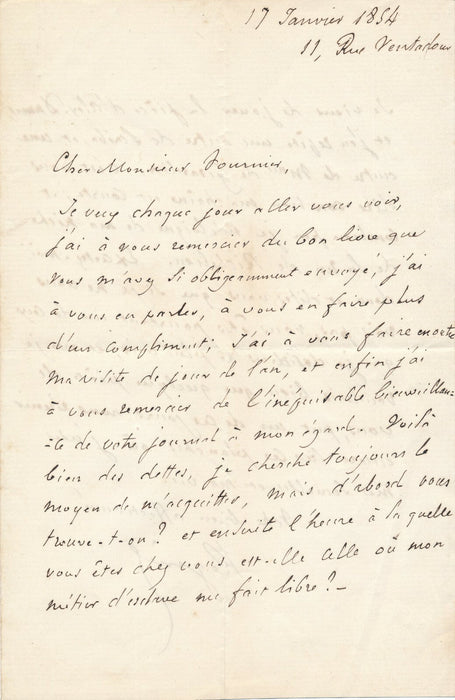 17 Janvier 1854
11, Rue Ventadour
Cher Monsieur Fournier,
Je veux chaque jour aller vous voir,
j'ai à vous remercier du bon livre que
vous m'avez si obligeamment envoyé, j'ai
à vous en parler, à vous en faire plus
d'un compliment; J'ai à vous faire encore
ma visite de jour de l'an, et enfin j'ai
à vous remercier de l'inépuisable bienveillan-
-ce de votre journal à mon égard. Voilà
bien des dettes, je cherche toujours le
moyen de m'acquitter, mais d'abord vous
trouve-t-on? et ensuite l'heure à la quelle
vous êtes chez vous est-elle celle où mon
métier d'esclave me fait libre?_